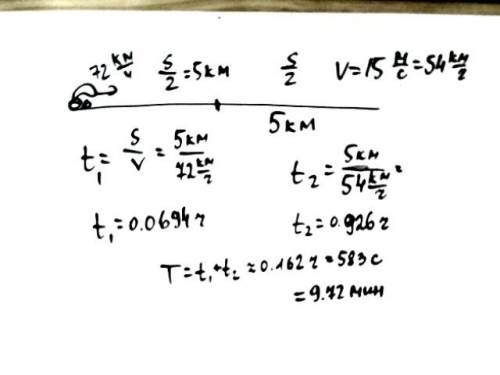 72 км/ч S/2 = 5км S/2 V = 15 м/с = 54 км/ч
5км
t₁ = S/V = 5км/72 км/ч
t₂ = 5км/54 км/ч =
t₁ = 0.0694 ч
t₂ = 0.926 ч
T = t₁ + t₂ = 0.162 ч = 583 с
= 9.72 мин